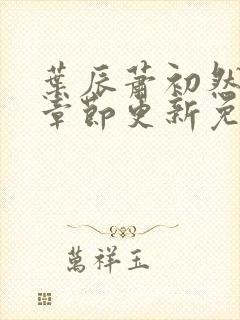 葉辰蕭初然
章節更新免
萬祥玉